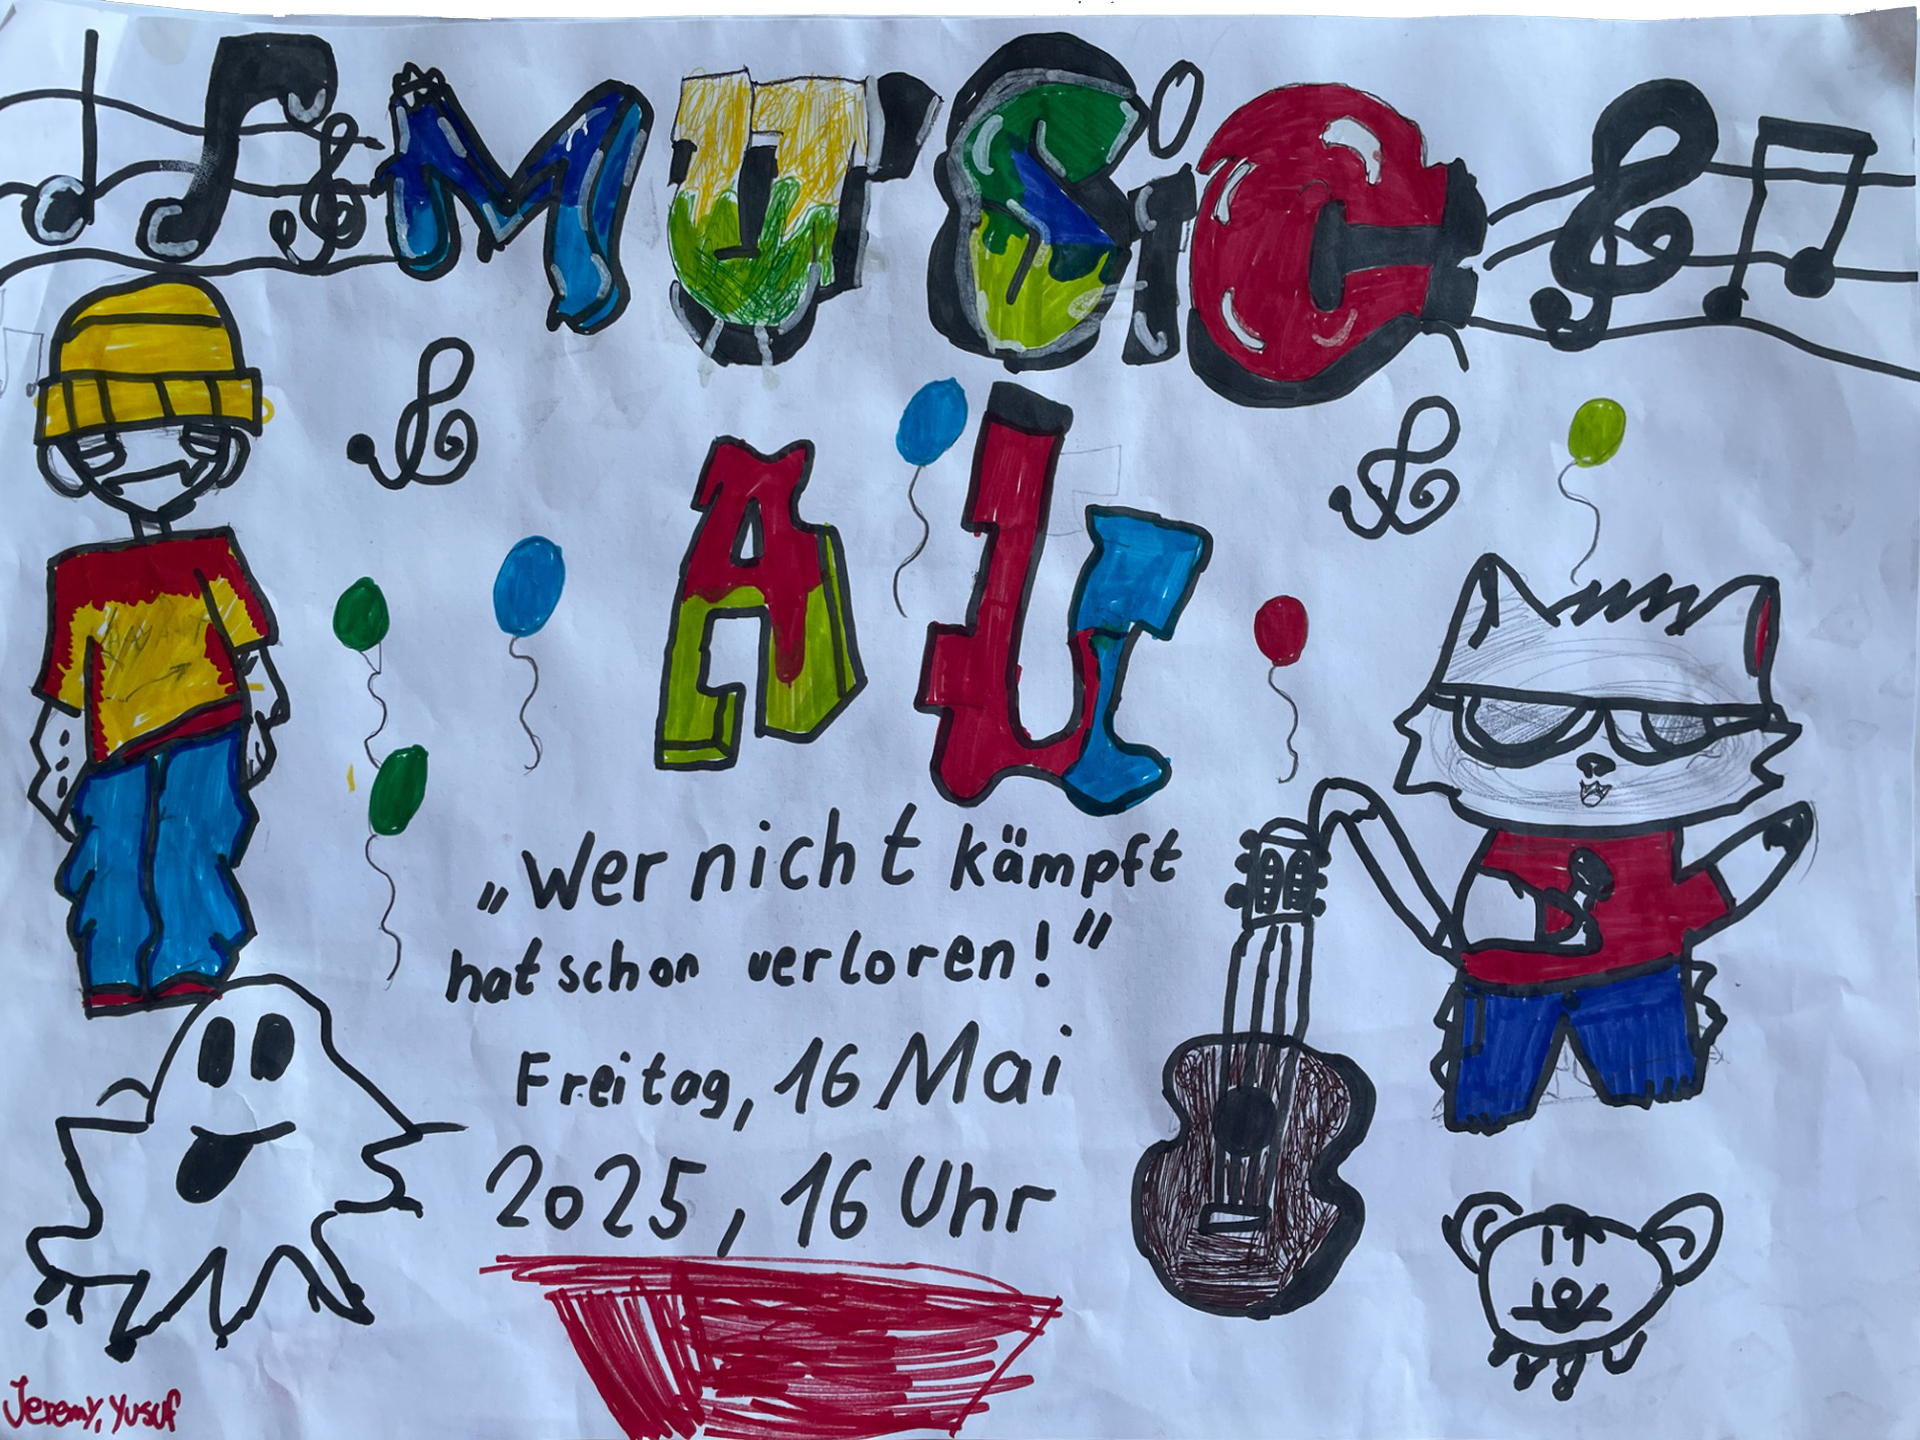 MUSiC
AL
„Wer nicht kämpft
hat schon verloren!”
Freitag, 16 Mai
2025, 16 Uhr
Jeremy, Yusuf